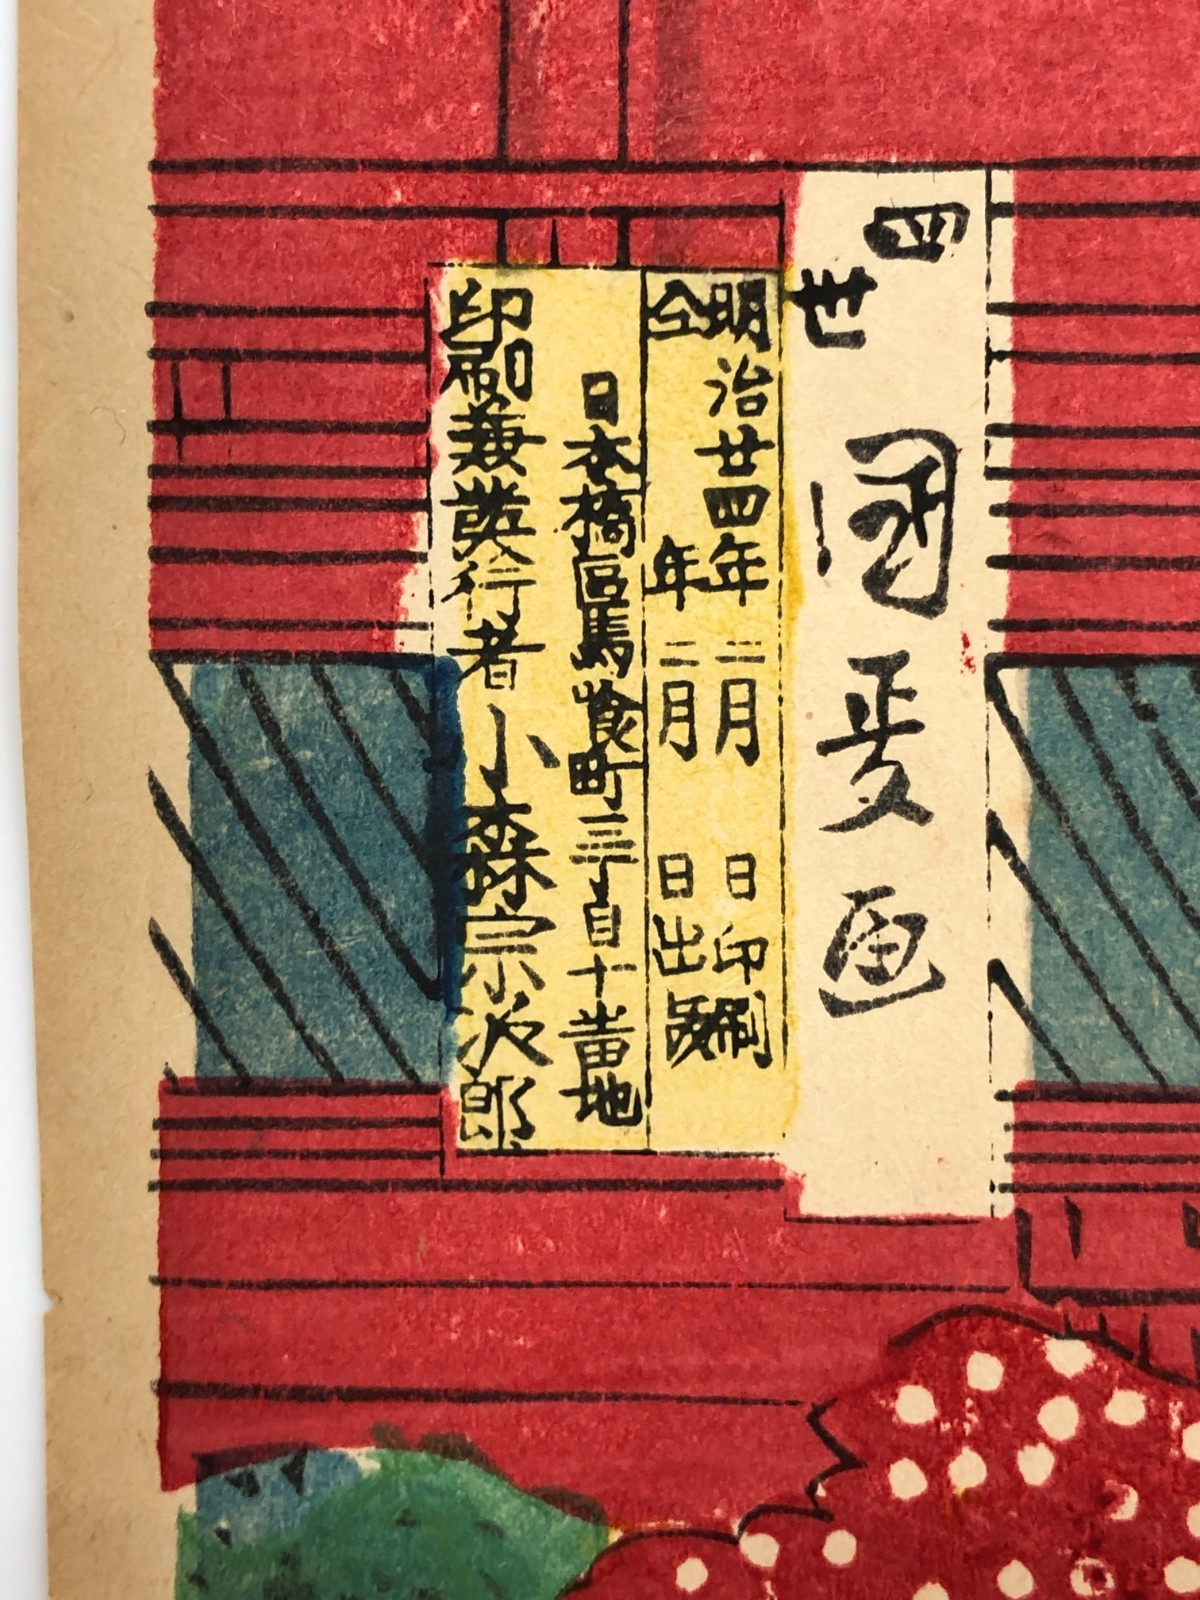 四世 國政画
明治廿四年二月 日印刷
仝 年二月 日出版
日本橋區馬喰町三丁目十番地
印刷兼発行者 小森宗次郎